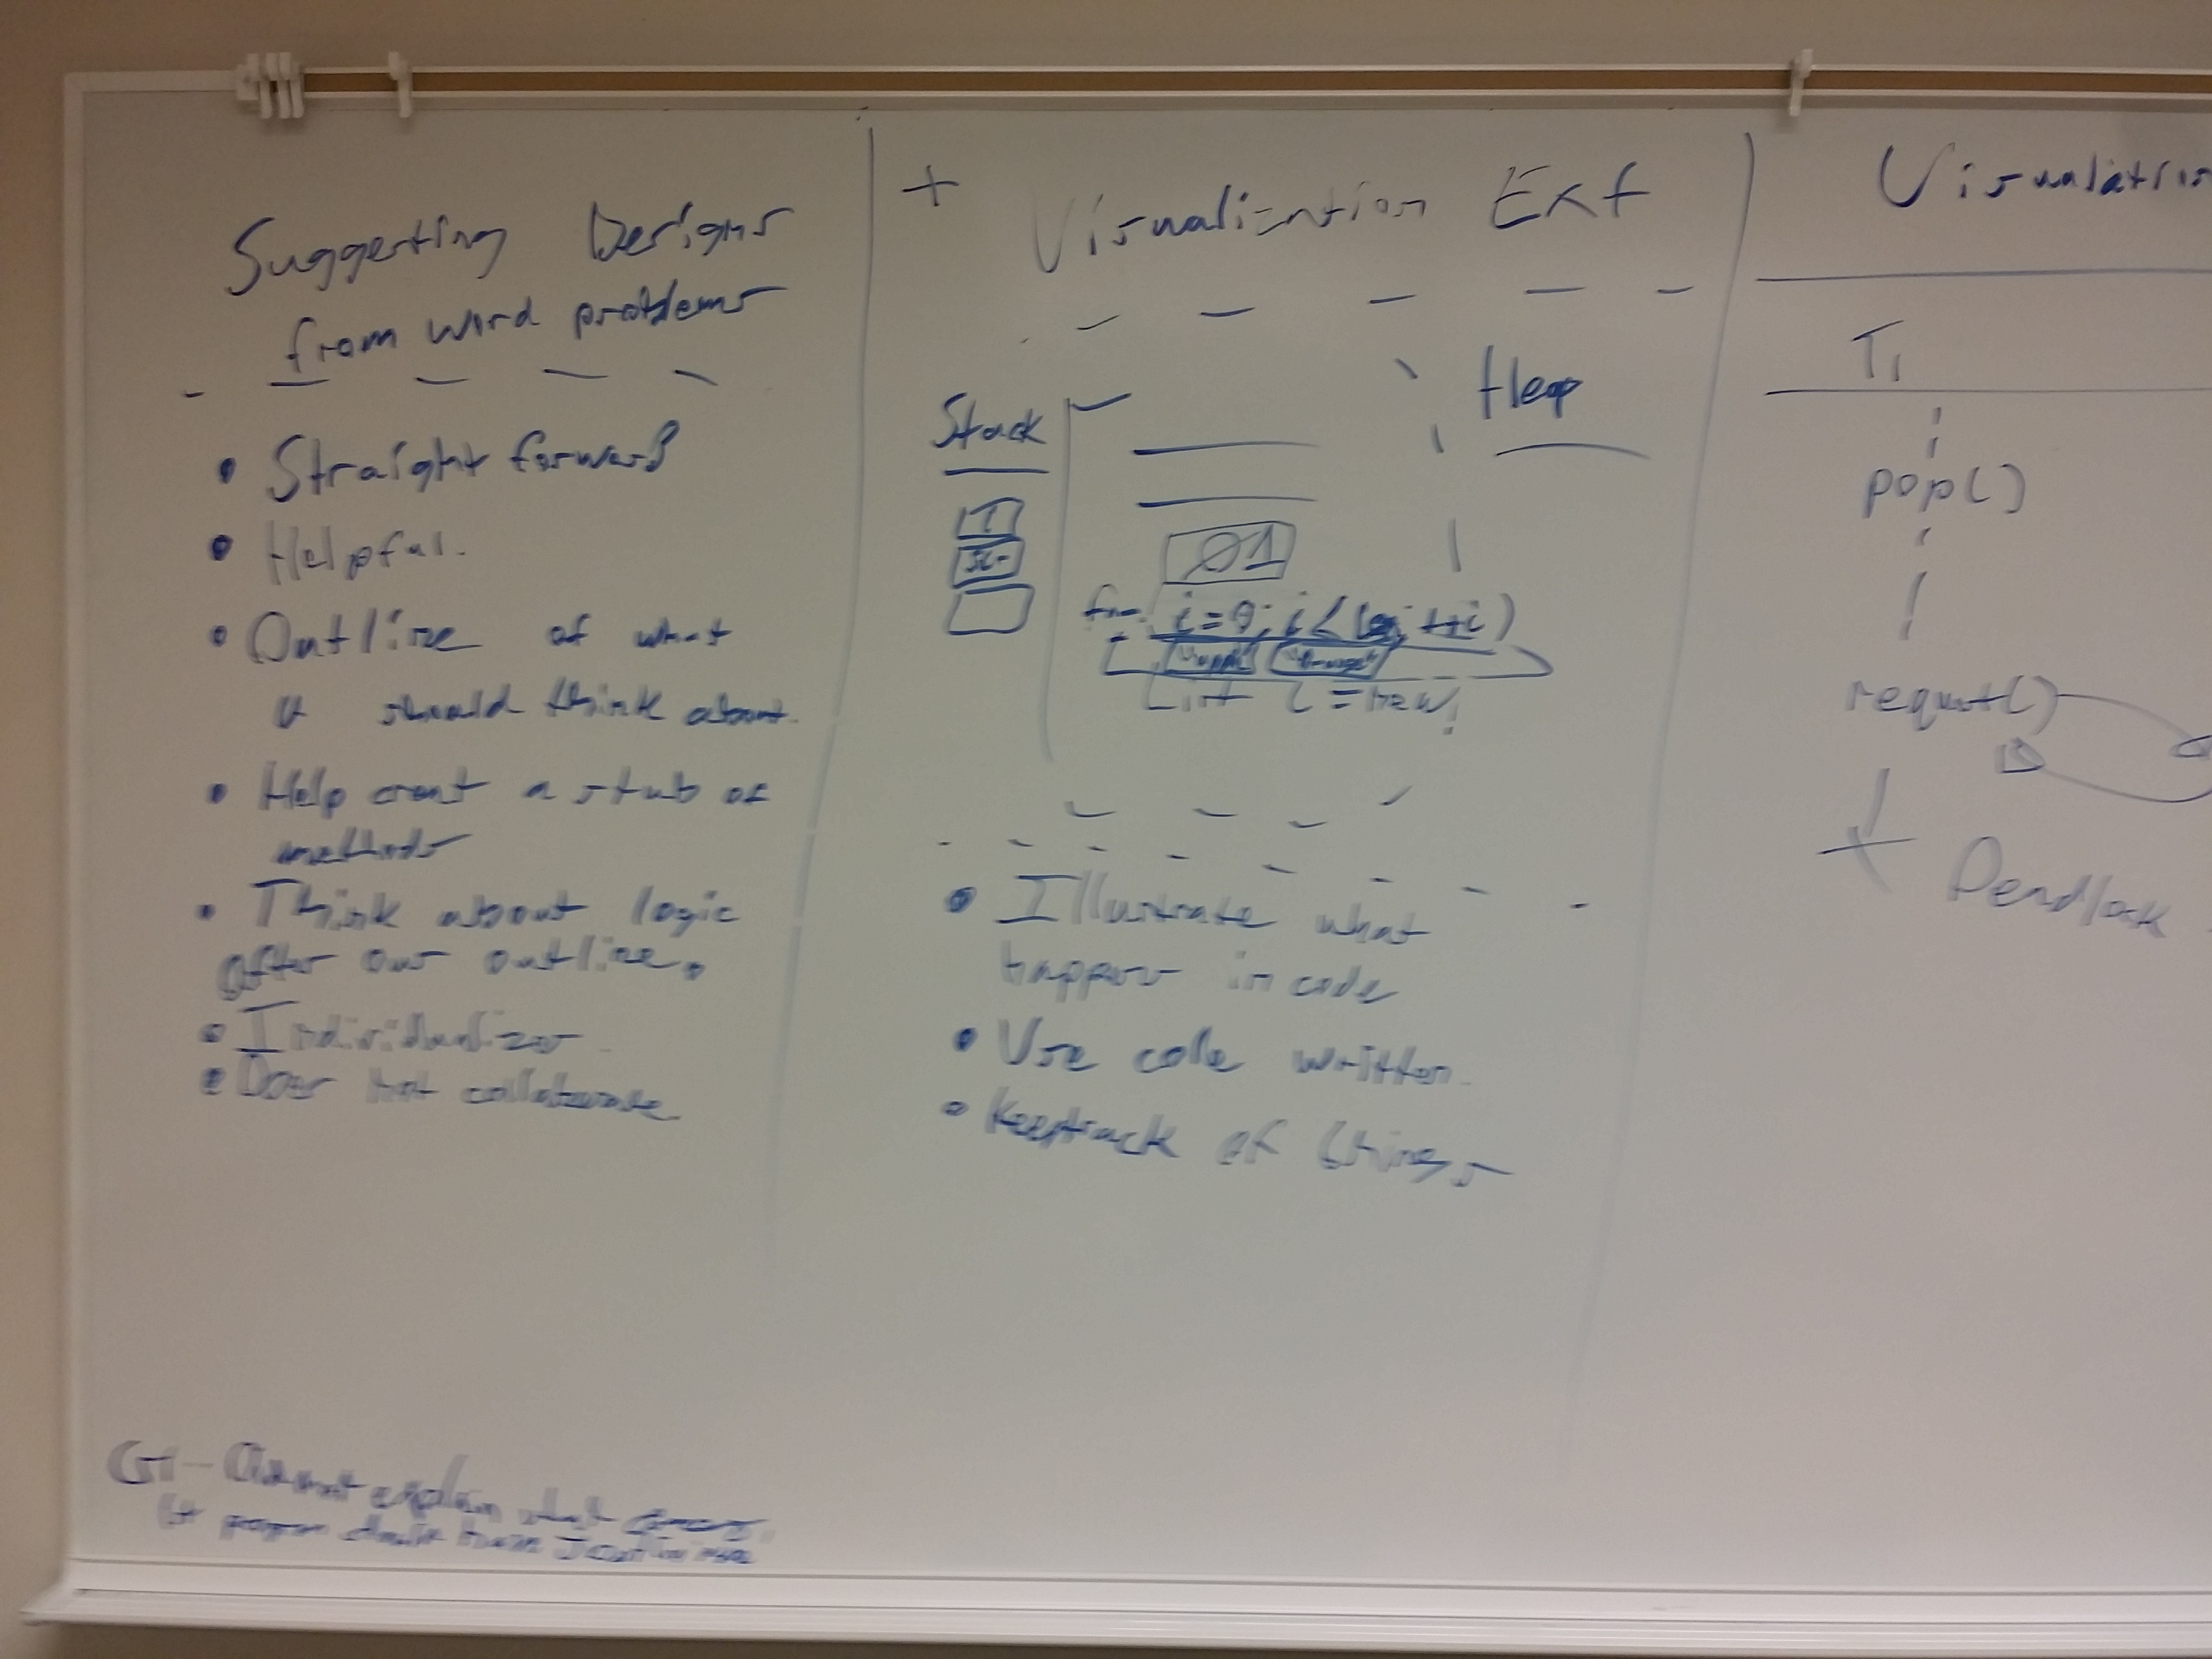 Suggesting Designs
from word problems
• Straight forward
• Helpful.
• Outline of what
u should think about.
• Help creat a stub of
methods
• Think about logic
after our outline.
• Individualize
• Does not collaborate
+ Visualization Ext
Stack
Heap
1
01
for i=0; i<len; ++i)
List l = new;
• Illustrate what
happens in code
• Use code written.
• Keep track of things
T1
pop()
request()
+ Deadlock